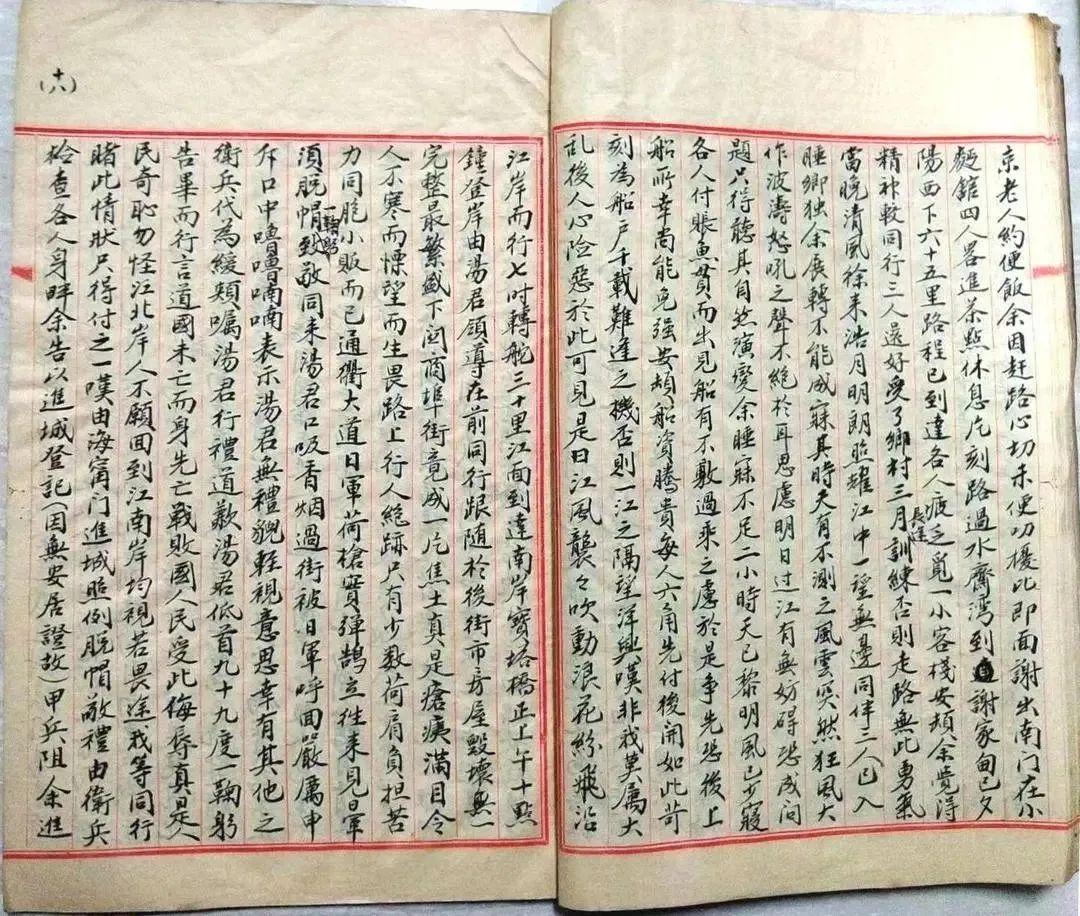 京老人約便飯余因赶路心切未便叨擾比即面謝出南門在小
麵館四人畧進茶點休息片刻路過水齊灣到謝家甸已夕
陽西下六十五里路程已到達各人疲乏覓一小客棧安頓余覺得
精神較同行三人還好受了鄉村三月長途訓練否則走路無此勇氣
當晚清風徐来浩月明朗照耀江中一望無邊同伴三人已入
睡鄉独余展轉不能成寐其時天有不測之風雲突然狂風大
作波濤怒吼之聲不絶於耳思慮明日过江有無妨碍恐成问
題只得聽其自然演變余睡寐不足二小時天已黎明風已少寝
各人付賬魚貫而出見船有不敷過乘之慮於是争先恐後上
船所幸尚能免强安頓船資騰貴每人六角先付後開如此苛
刻為船户千載難逢之機否則一江之隔望洋興嘆非我莫属大
乱後人心险惡於此可見是日江風襲々吹動浪花紛飛沿
(十六)
江岸而行七吋轉舵三十里江面到達南岸寶塔橋正上午十點
鐘登岸由湯君領導在前同行跟随於後街市房屋毁壞無一
完整最繁盛下関商埠街竟成一片焦土真是瘡痍滿目令
人不寒而慄望而生畏路上行人絶跡只有少数荷肩負担苦
力同胞小販而已通衢大道日軍荷槍實弹鹄立往来見日軍
須脱帽一鞠躬致敬同来湯君口吸香烟過街被日軍呼面嚴厲申
斥口中嚕嚕喃喃表示湯君無禮貌輕視意思幸有其他之
衛兵代為緩頰嘱湯君行禮道歉湯君低首九十九度一鞠躬
告畢而行言道國未亡而身先亡戰敗國人民受此侮辱真是人
民奇恥勿怪江北岸人不願回到江南岸均視若畏途我等同行
睹此情狀只得付之一嘆由海甯门進城照例脱帽敬禮由衛兵
检查各人身畔余告以進城登記(因無安居證故)甲兵阻余進